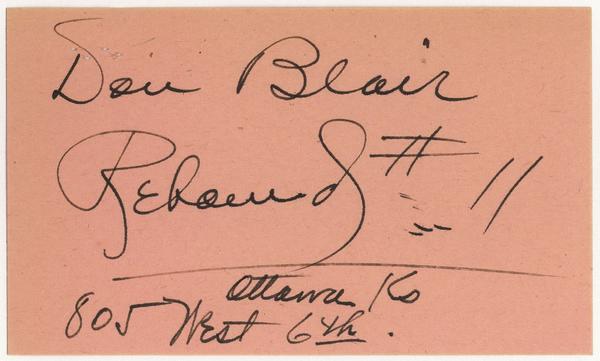 Don Blair
Rebound # 11
Ottawa Ks
805 West 6th.